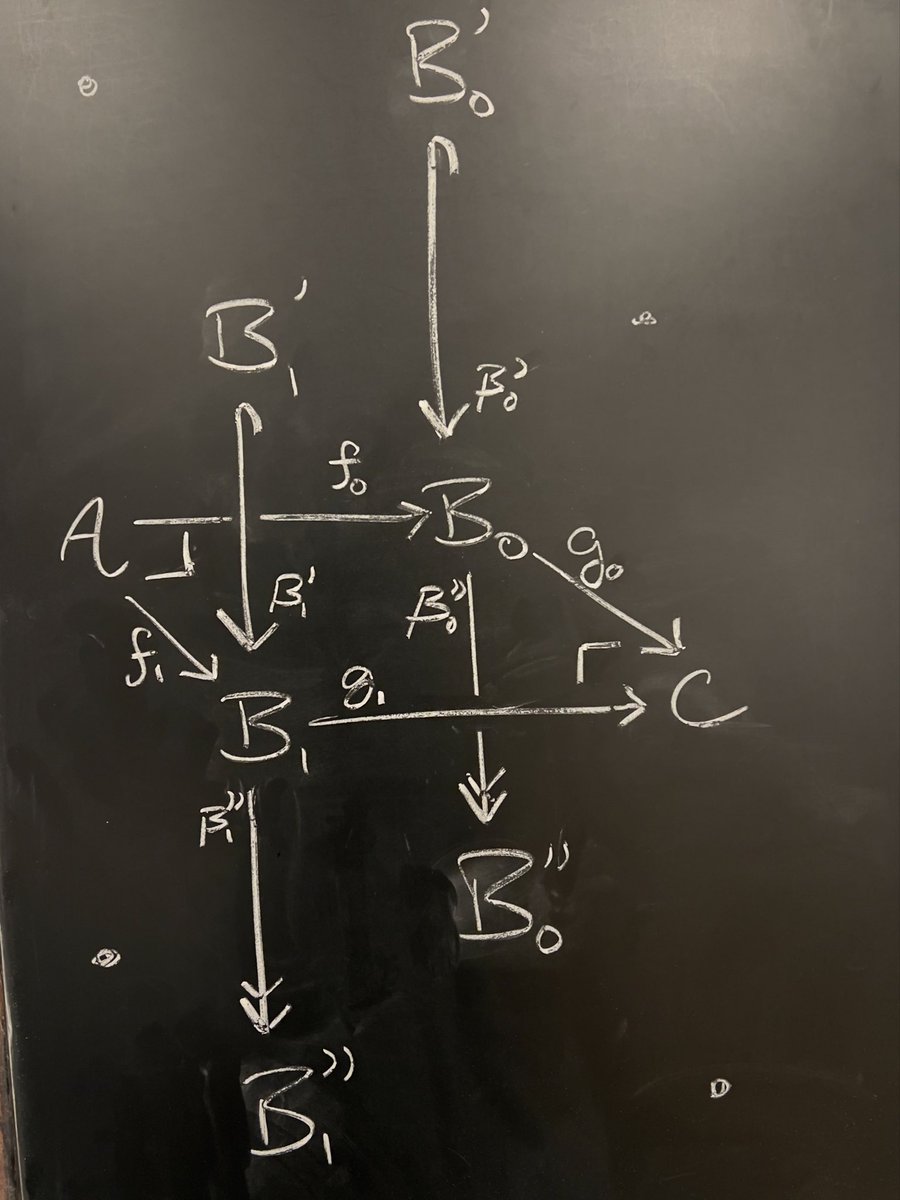 B₀′
B₁′
β₀′
f₀
A
B₀
g₀
β₁′
β₀″
f₁
g₁
C
B₁
β₁″
B₀″
B₁″